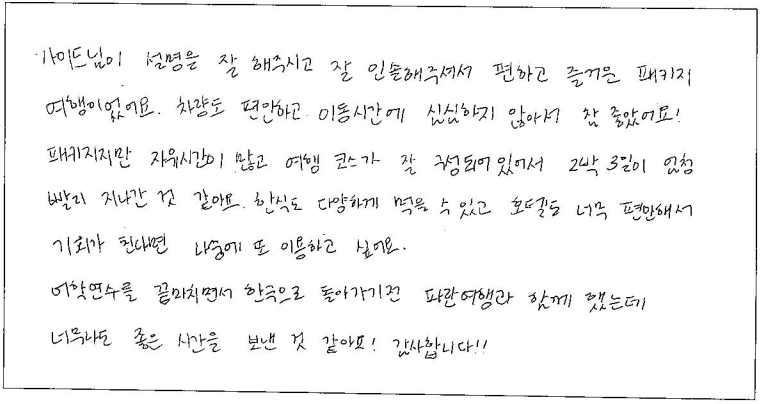 가이드님이 설명을 잘 해주시고 잘 인솔해주셔서 편하고 즐거운 패키지
여행이었어요. 차량도 편안하고 이동시간에 심심하지 않아서 참 좋았어요!
패키지지만 자유시간이 많고 여행 코스가 잘 구성되어있어서 2박 3일이 엄청
빨리 지나간 것 같아요. 한식도 다양하게 먹을 수 있고 호텔도 너무 편안해서
기회가 된다면 나중에 또 이용하고 싶어요.
어학연수를 끝마치면서 한국으로 돌아가기전 파란여행과 함께 했는데
너무나도 좋은 시간을 보낸 것 같아요! 감사합니다!!